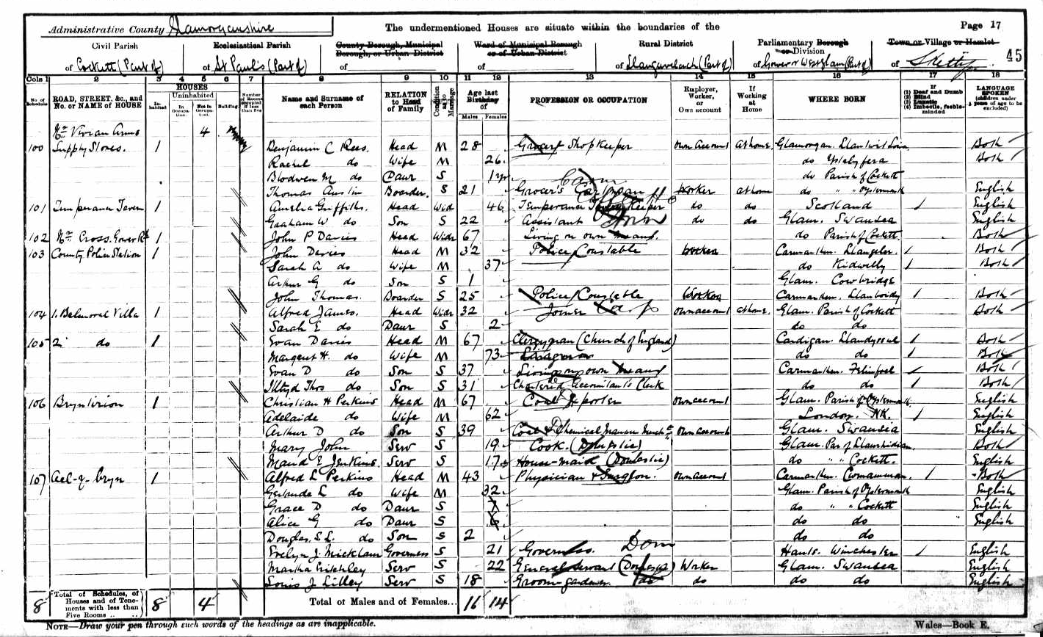 Administrative County Glamorganshire The undermentioned Houses are situate within the boundaries of the Page 17
Civil Parish Ecclesiastical Parish County Borough, Municipal Borough, or Urban District Ward of Municipal Borough or of Urban District Rural District Parliamentary Borough or Division Town or Village or Hamlet
of Cockett (Part of) of St Pauls (Part of) of of of (Part of) of Gower West Glam (Part of) of Sketty 45
Cols 1 2 3 4 5 6 7 8 9 10 11 12 13 14 15 16 17 18
No. of Schedule ROAD, STREET, &c., and No. or NAME of HOUSE HOUSES Inhabited Uninhabited In Occupation Not in Occupation Building Name and Surname of each Person RELATION to Head of Family Condition as to Marriage Age last Birthday of Males Females PROFESSION OR OCCUPATION Employer, Worker, or Own account If Working at Home WHERE BORN (1) Deaf and Dumb (2) Blind (3) Lunatic (4) Imbecile, feeble-minded LANGUAGE SPOKEN
Vivian Arms 4
100 Supply Stores 1 Benjamin C Rees Head M 28 Grocer Shopkeeper Own account At home Glamorgan Both
Rachel do Wife M 26 do Ystalyfera Both
Blodwen M do Daur S 1 do Parish of Cockett
Thomas Austin Boarder S 21 Worker at home do English
101 1 Griffiths Head Wid 46 Temperance do do Scotland English
Graham W do Son S 22 Assistant do do Glam. Swansea English
102 1 John P Davies Head Widr 67 Living on own means do Parish of Cockett Both
103 County Police Station 1 John Davies Head M 32 Police Constable Worker Carmarthen Llangeler Both
Sarah A do Wife M 37 do Kidwelly Both
Arthur G do Son S 1 Glam. Cowbridge
John Thomas Boarder S 25 Police Constable Worker Carmarthen Both
104 1. Balmoral Villa 1 Alfred James Head Widr 32 Joiner Own account At home Glam. Parish of Cockett Both
Sarah E do Daur S 2 do do
105 2. do 1 Evan Davies Head M 67 Clergyman (Church of England) Cardigan Llandyssul Both
Margaret H. do Wife M 73 do do Both
Evan D do Son S 37 Living on own means Carmarthen Felinfoel Both
Illtyd Thos do Son S 31 Accountants Clerk do do Both
106 1 Christian H Perkins Head M 67 Coal Exporter Own account Glam. Parish of English
Adelaide do Wife M 62 London English
Arthur D do Son S 39 Own account Glam. Swansea English
Mary John Serv S 19 Cook (Domestic) Glam. Both
Maud E Jenkins Serv S 17 House-maid (Domestic) do Cockett English
107 Ael-y-bryn 1 Alfred L Perkins Head M 43 Physician & Surgeon Own account Carmarthen Both
Gertrude L do Wife M 32 Glam. Parish of English
Grace D do Daur S do Cockett English
Alice G do Daur S do do English
Douglas S.L. do Son S 2 do do
Evelyn J Micklam Governess S 21 Governess Hants. Winchester English
Martha Serv S 22 General servant (Domestic) Worker Glam. Swansea English
Louis J Lilley Serv S 18 Groom gardener do do do English
8 Total of Schedules, of Houses and of Tenements with less than Five Rooms 8 4 Total of Males and of Females... 16 14
NOTE—Draw your pen through such words of the headings as are inapplicable. Wales—Book E.